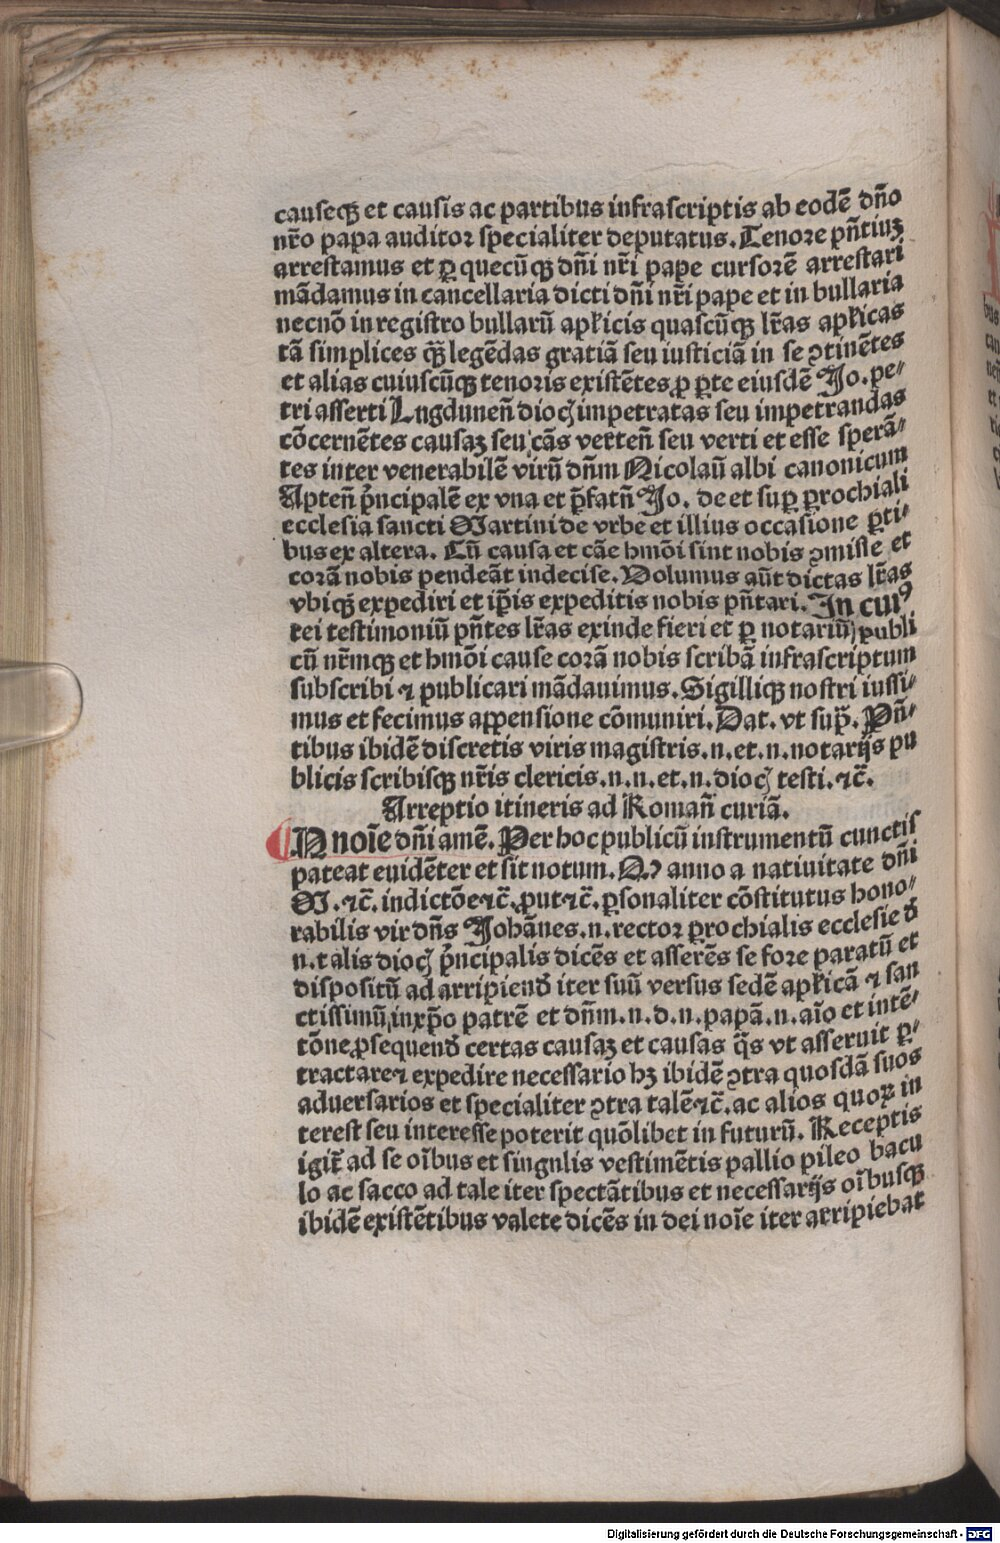 causeqꝫ et causis ac partibus infrascriptis ab eodē dn̄o
nr̄o papa auditoꝛ specialiter deputatus. Tenoꝛe pn̄tiuꝫ
arrestamus et ꝑ quecūqꝫ dn̄i nr̄i pape cursoꝛē arrestari
mādamus in cancellaria dicti dn̄i nr̄i pape et in bullaria
necnō in registro bullarū apl̄icis quascūqꝫ lr̄as apl̄icas
tā simplices qꝫ̄ legēdas gratiā seu iusticiā in se ꝯtinētes
et alias cuiuscūqꝫ tenoꝛis existētes ꝓ ꝑte eiusdē Jo. pe-
tri asserti Lugdunen̄ dioc̄ impetratas seu impetrandas
cōcernētes causaꝫ seu cās verten̄ seu verti et esse sperā-
tes inter venerabilē virū dn̄m Nicolaū albi canonicum
Apten̄ pͥncipalē ex vna et p̄fatn̄ Jo. de et suꝑ ꝑrochiali
ecclesia sancti Martini de vrbe et illius occasione ꝑti-
bus ex altera. Cū causa et cāe hmōi sint nobis ꝯmisse et
coꝛā nobis pendeāt indecise. Uolumus aūt dictas lr̄as
vbiqꝫ expediri et ip̄is expeditis nobis pn̄tari. In cuiꝰ
rei testimoniū pn̄tes lr̄as exinde fieri et ꝑ notariū publi
cū nr̄mqꝫ et hmōi cause coꝛā nobis scribā infrascriptum
subscribi ⁊ publicari mādauimus. Sigilliqꝫ nostri iussi-
mus et fecimus appensione cōmuniri. Dat. vt supͣ. Pn̄-
tibus ibidē discretis viris magistris .n. et .n. notarijs pu
blicis scribisqꝫ nr̄is clericis .n. n. et .n. dioc̄ testi. ⁊c̄.
Arreptio itineris ad Roman̄ curiā.
IN noīe dn̄i amē. Per hoc publicū instrumentū cunctis
pateat euidēter et sit notum. Qꝫ anno a natiuitate dn̄i
M. ⁊c̄. indictōe ⁊c̄. ꝓut ⁊c̄. ꝑsonaliter cōstitutus hono-
rabilis vir dn̄s Johānes .n. rectoꝛ ꝑrochialis ecclesie ꝺ̄
n. talis dioc̄ pͥncipalis dicēs et asserēs se foꝛe paratū et
dispositū ad arripienꝺ̄ iter suū versus sedē apl̄icā ⁊ san
ctissimū in xp̄o patrē et dn̄m .n. d. n. papā .n. aīo et intē-
tōne ꝓsequenꝺ̄ certas causaꝫ et causas qͣs vt asseruit ꝑ-
tractare ⁊ expedire necessario hꝫ ibidē ꝯtra quosdā suos
aduersarios et specialiter ꝯtra talē ⁊c̄. ac alios quoꝝ in
terest seu interesse poterit quōlibet in futurū. Receptis
igit᷑ ad se oībus et singulis vestimētis pallio pileo bacu
lo ac sacco ad tale iter spectātibus et necessarijs oībusqꝫ
ibidē existētibus valete dicēs in dei noīe iter arripiebat
Digitalisierung gefördert durch die Deutsche Forschungsgemeinschaft - DFG